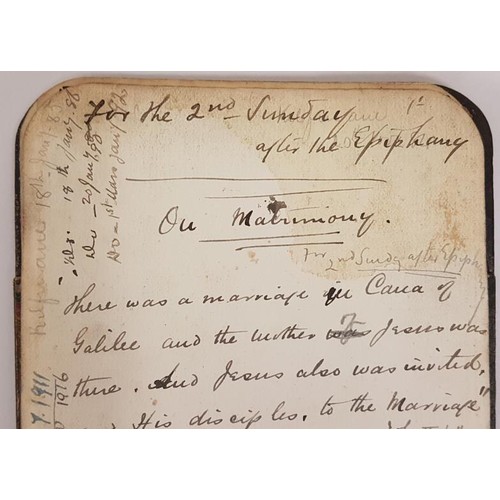 For the 2nd Sunday
after the Epiphany
On Matrimony.
For 2nd Sunday after Epiphany
There was a marriage in Cana of
Galilee and the Mother of Jesus was
there. And Jesus also was invited,
His disciples, to the Marriage"
18th Jany. 85
Do. 18th Jany. 88
Do - 20 Jany
Do - 1st Mass Jany
1911
1916